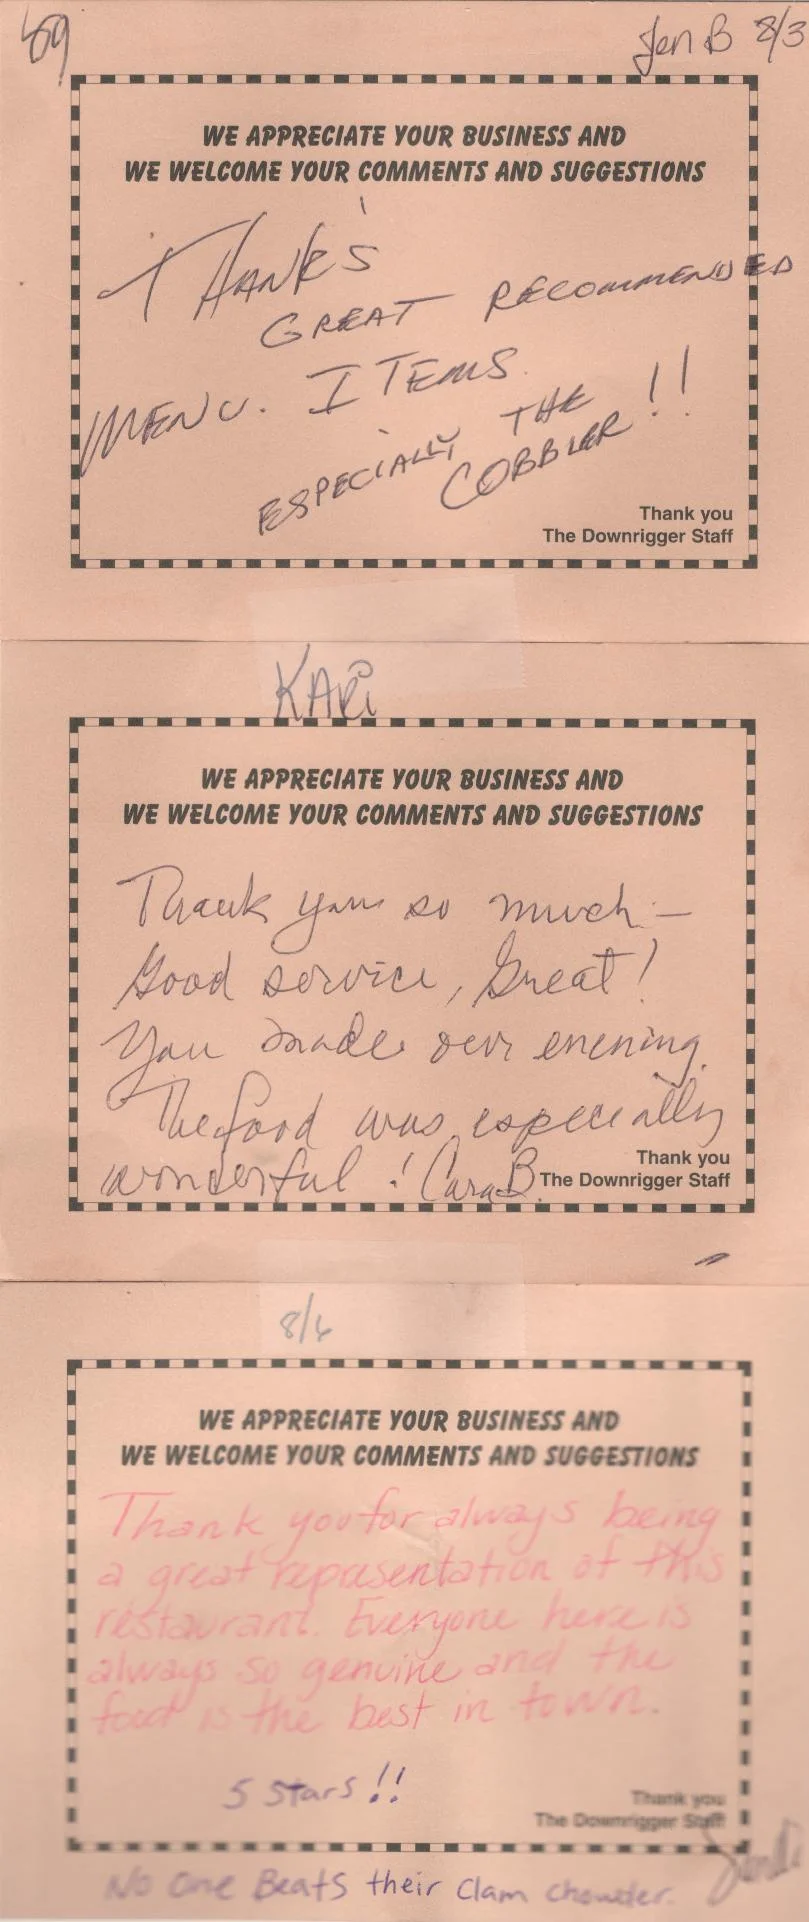 Jen B 8/3
WE APPRECIATE YOUR BUSINESS AND
WE WELCOME YOUR COMMENTS AND SUGGESTIONS
THANK'S
GREAT RECOMMENDED
MENU. ITEMS
ESPECIALLY THE
COBBLER!!
Thank you
The Downrigger Staff
KARi
WE APPRECIATE YOUR BUSINESS AND
WE WELCOME YOUR COMMENTS AND SUGGESTIONS
Thank you so much –
Good service, Great!
You made our evening.
The food was especially
wonderful! Cara B.
Thank you
The Downrigger Staff
8/6
WE APPRECIATE YOUR BUSINESS AND
WE WELCOME YOUR COMMENTS AND SUGGESTIONS
Thank you for always being
a great representation of this
restaurant. Everyone here is
always so genuine and the
food is the best in town.
5 Stars!!
Thank you
The Downrigger Staff
No one Beats their Clam Chowder.